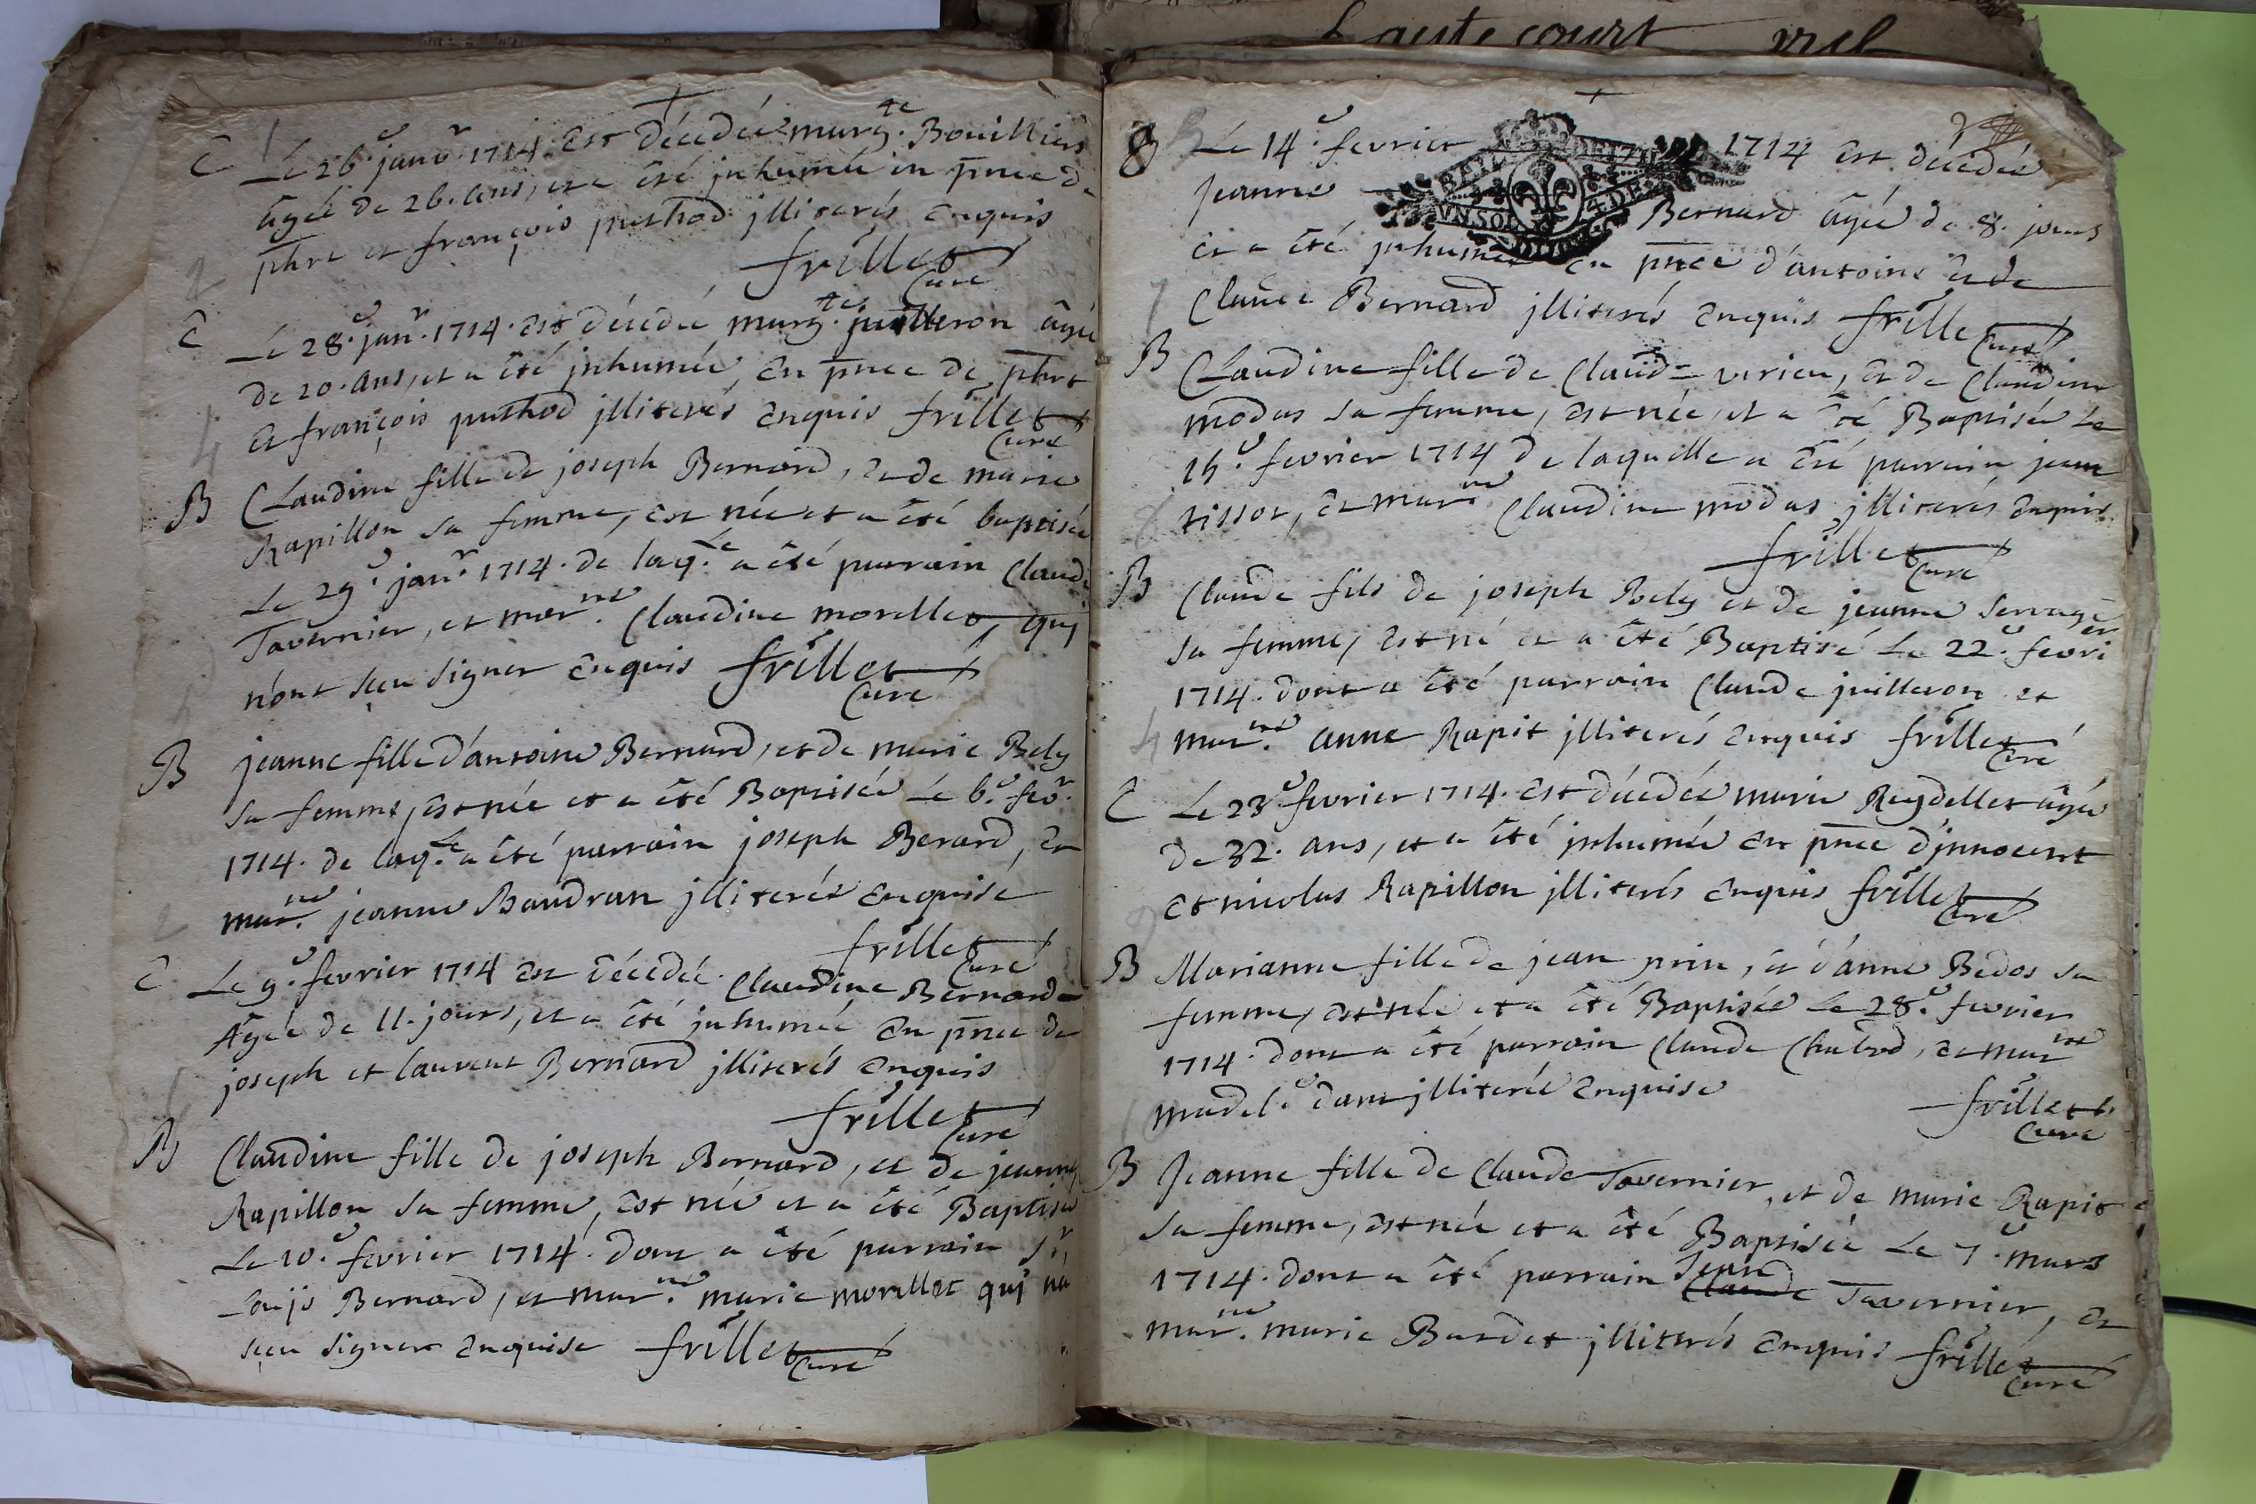 hautecourt
C
Le 26.e janv.r 1714. est décedée marg.te Bouillier
âgée de 26. ans, et a été jnhumée en pnce de
phre et françois puthod jlliterés enquis
frillet
Curé
C
Le 28.e jan.r 1714. est décedée marg.te juilleron âgée
de 20. ans, et a été jnhumée, en pnce de phre
et françois puthod jlliterés enquis frillet
Curé
B
Claudine fille de joseph Bernard, et de marie
Rapillon sa femme, est née et a été baptisée
Le 29.e jan.r 1714. de laq.le a été parrain Claude
Tavernier, et mar.ne Claudine morellet, qui
n'ont sçeu signer enquis frillet
Curé
B
jeanne fille d'antoine Bernard, et de marie Bely
sa femme, est née et a été Baptisée Le 6.e fev.r
1714. de laq.le a été parrain joseph Berard, et
mar.ne jeanne Baudran jlliterée enquise
frillet
Curé
C
Le 9.e fevrier 1714 est décedée Claudine Bernard
Âgée de 11. jours, et a été jnhumée en pnce de
joseph et laurent Bernard jlliterés enquis
frillet
Curé
B
Claudine fille de joseph Bernard, et de jeanne
Rapillon sa femme, est née et a été Baptisée
Le 10.e fevrier 1714. dont a été parrain s.r
Loüis Bernard, et mar.ne marie morellet qui n'a
sçeu signer enquise frillet
Curé
B
Le 14.e fevrier 1714 est décedée
jeanne Bernard âgée de 8. jours
UN SOL 4 DE
et a été jnhumée en pnce d'antoine et de
Claude Bernard jlliterés enquis frillet
Curé
B
Claudine fille de Claude virieu, et de Claudine
modas sa femme, est née, et a été Baptisée Le
15.e fevrier 1714 de laquelle a été parrain jean
tissot, et mar.ne Claudine modas jlliterés enquis
frillet
Curé
B
Claude fils de joseph Bely et de jeanne servage
sa femme, est né et a été Baptisé Le 22.e fevrier
1714. dont a été parrain Claude juilleron et
mar.ne anne Rapit jlliterés enquis frillet
Curé
C
Le 23.e fevrier 1714. est décedée marie Reydellet âgée
de 32. ans, et a été jnhumée en pnce d'jnnocent
et nicolas Rapillon jlliterés enquis frillet
Curé
B
Marianne fille de jean prin, et d'anne Bedos sa
femme, est née et a été Baptisée Le 28.e fevrier
1714. dont a été parrain Claude Chabod, et mar.ne
madel.e dam jlliterée enquise frillet
Curé
B
Jeanne fille de Claude Tavernier, et de marie Rapit
sa femme, est née et a été Baptisée Le 7.e mars
1714. dont a été parrain Claude Jean Tavernier, et
mar.ne marie Burdet jlliterés enquis frillet
Curé